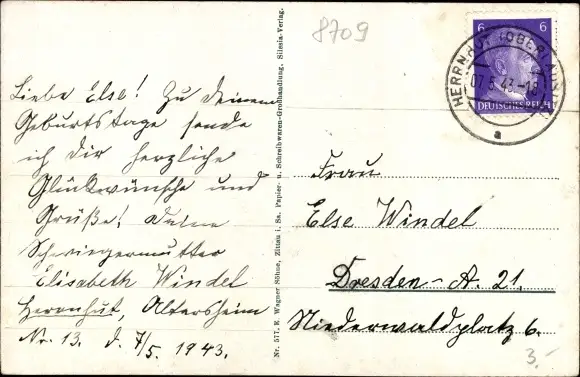 8709
Liebe Else! Zu deinem
Geburtstage sende
ich dir herzliche
Glückwünsche und
Grüße! Deine
Schwiegermutter
Elisabeth Windel
Herrnhut, Altersheim
Nr. 13. d. 7/5. 1943.
Nr. 577. K. Wagner Söhne, Zittau i. Sa. Papier- u. Schreibwaren-Großhandlung. Silesia-Verlag.
6 6
DEUTSCHES REICH
HERRNHUT (OBERLAUS
07.5.43.-18
a
Frau
Else Windel
Dresden-A. 21.
Niederwaldplatz 6.
3.-